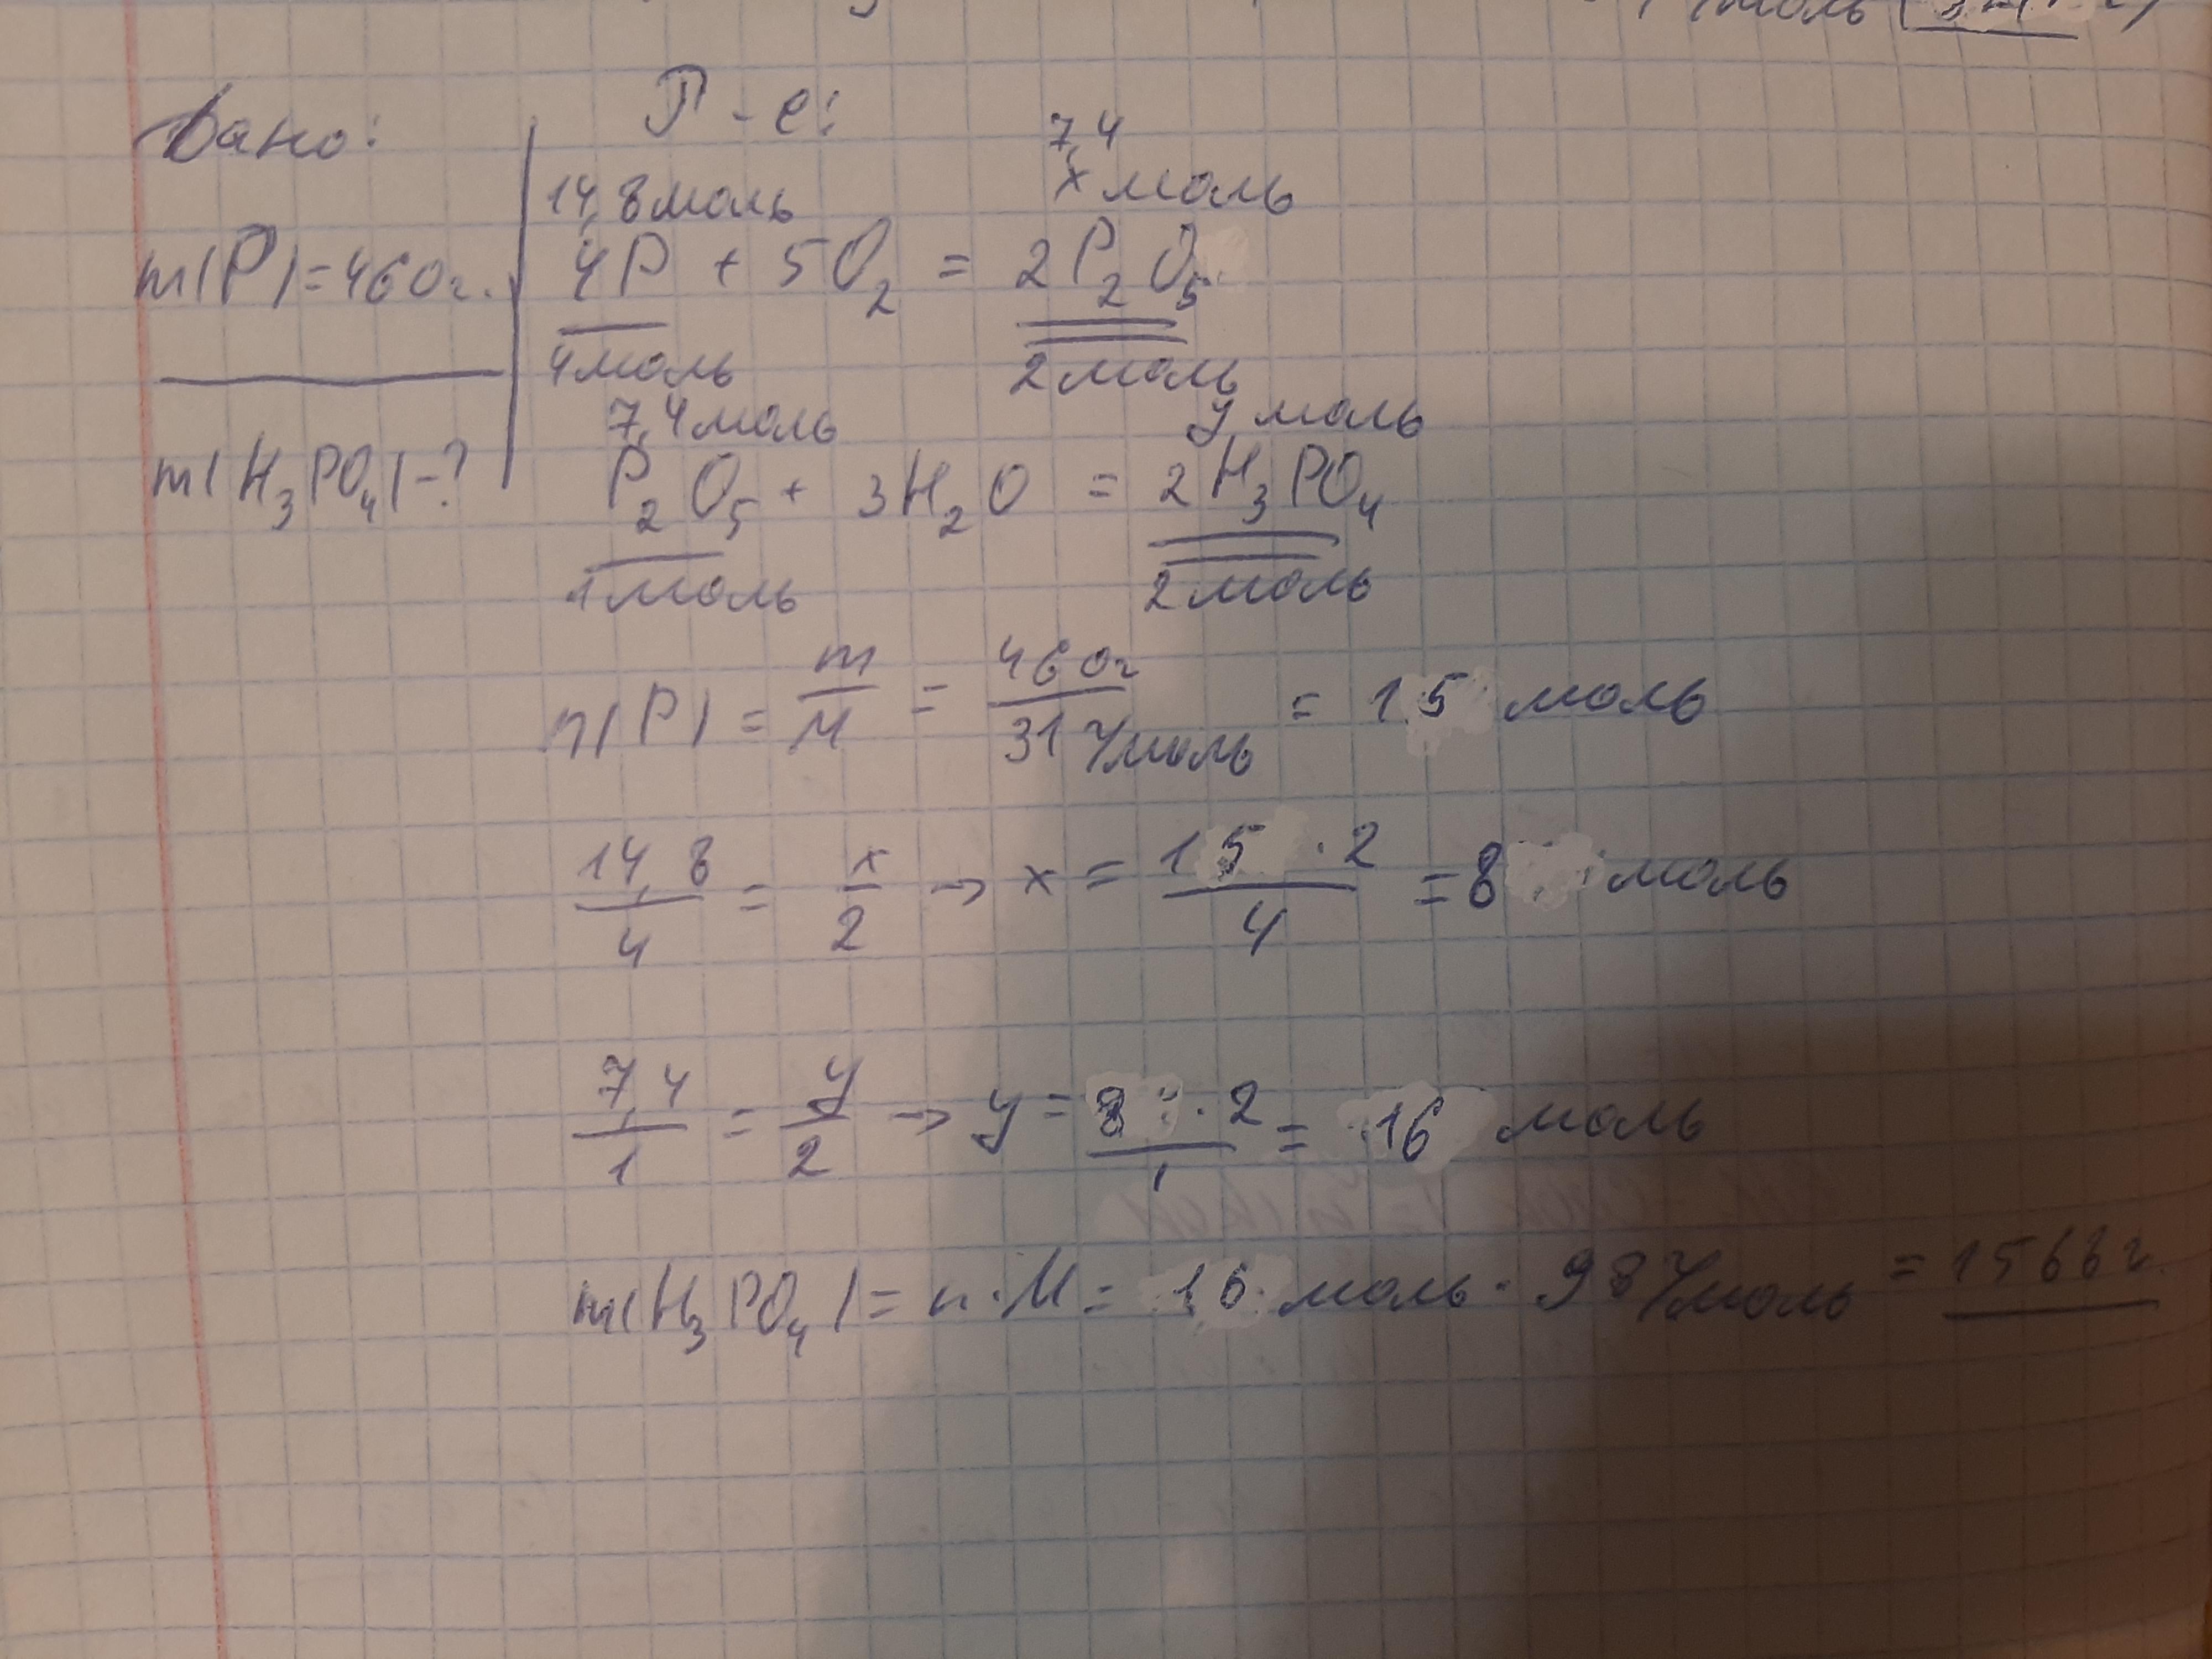 моль
Дано:
Р-е:
7,4
14,8 моль х моль
m(P)=460г. 4P + 5O₂ = 2P₂O₅
4 моль 2 моль
7,4 моль у моль
m(H₃PO₄)-? P₂O₅ + 3H₂O = 2H₃PO₄
1 моль 2 моль
n(P) = m/M = 460г/31 г/моль = 15 моль
14,8/4 = x/2 → x = 15 · 2/4 = 8 моль
7,4/1 = y/2 → y = 8 · 2/1 = 16 моль
m(H₃PO₄) = n · M = 16 моль · 98 г/моль = 1566 г.